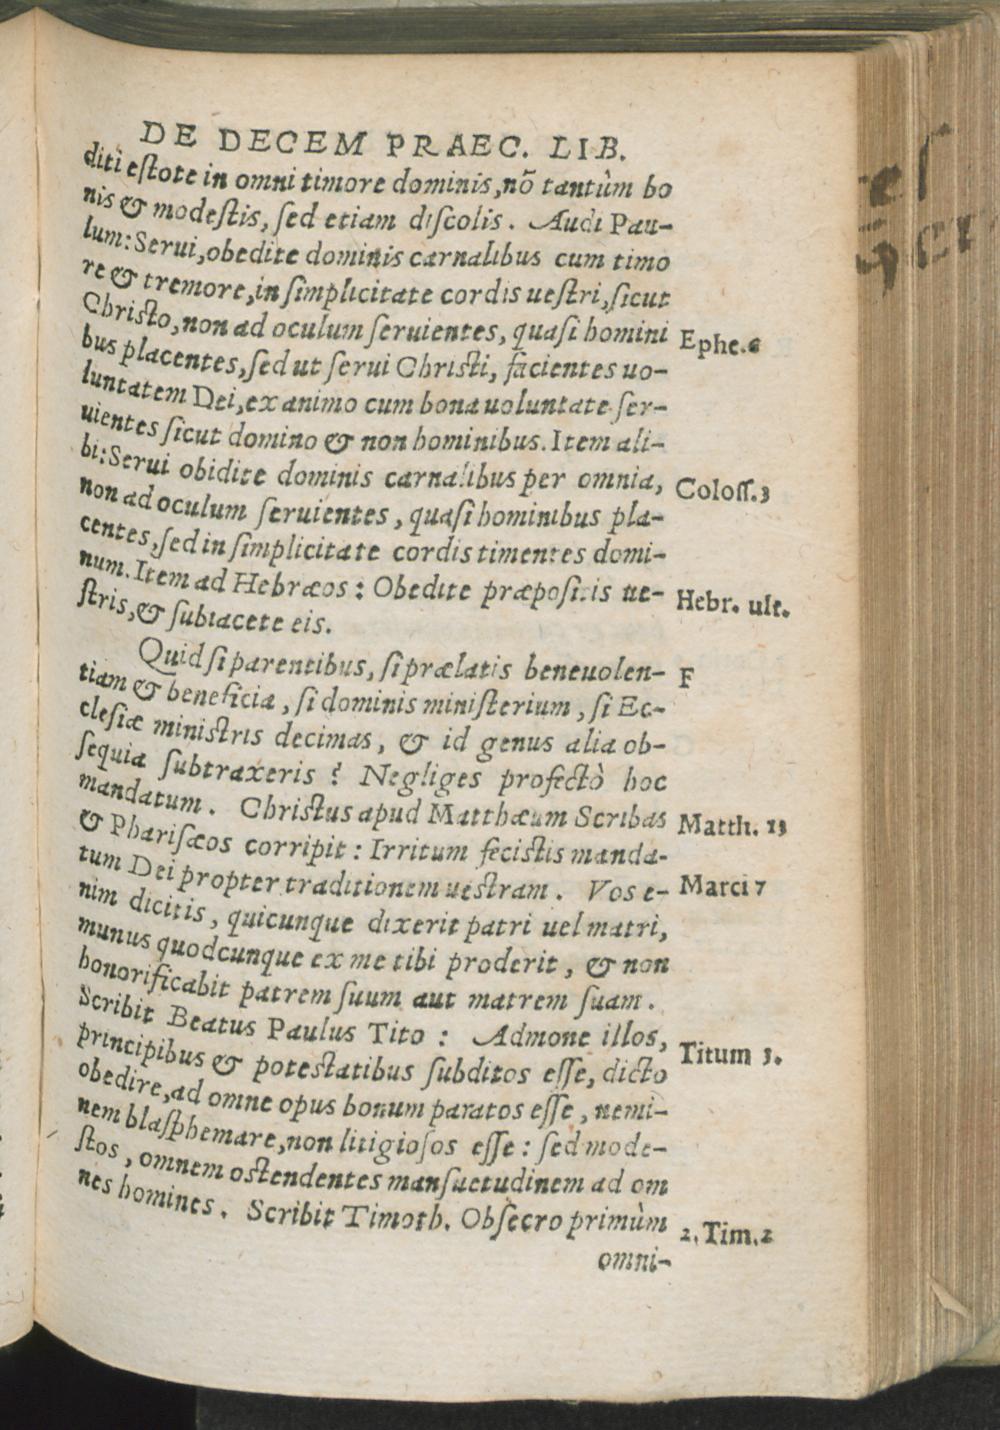 DE DECEM PRAEC. LIB.
diti eſtote in omni timore dominis, nõ tantùm bo
nis & modeſtis, ſed etiam diſcolis. Audi Pau-
lum: Serui, obedite dominis carnalibus cum timo
re & tremore, in ſimplicitate cordis ueſtri, ſicut
Chriſto, non ad oculum ſeruientes, quaſi homini
Ephe. 6
bus placentes, ſed ut ſerui Chriſti, facientes uo-
luntatem Dei, ex animo cum bona uoluntate ſer-
uientes ſicut domino & non hominibus. Item ali-
bi: Serui obidite dominis carnalibus per omnia,
Coloſſ. 3
non ad oculum ſeruientes, quaſi hominibus pla-
centes, ſed in ſimplicitate cordis timentes domi-
num. Item ad Hebræos: Obedite præpoſitis ue-
Hebr. ult.
ſtris, & ſubiacete eis.
Quid ſi parentibus, ſi prælatis beneuolen-
F
tiam & beneficia, ſi dominis miniſterium, ſi Ec-
cleſiæ miniſtris decimas, & id genus alia ob-
ſequia ſubtraxeris? Negliges profectò hoc
mandatum. Chriſtus apud Matthæum Scribas
Matth. 15
& Phariſæos corripit: Irritum feciſtis manda-
tum Dei propter traditionem ueſtram. Vos e-
Marci 7
nim dicitis, quicunque dixerit patri uel matri,
munus quodcunque ex me tibi proderit, & non
honorificabit patrem ſuum aut matrem ſuam.
Scribit Beatus Paulus Tito: Admone illos,
Titum 3.
principibus & poteſtatibus ſubditos eſſe, dicto
obedire, ad omne opus bonum paratos eſſe, nemi-
nem blaſphemare, non litigioſos eſſe: ſed mode-
ſtos, omnem oſtendentes manſuetudinem ad om
nes homines. Scribit Timoth. Obſecro primùm
2. Tim. 2
omni-